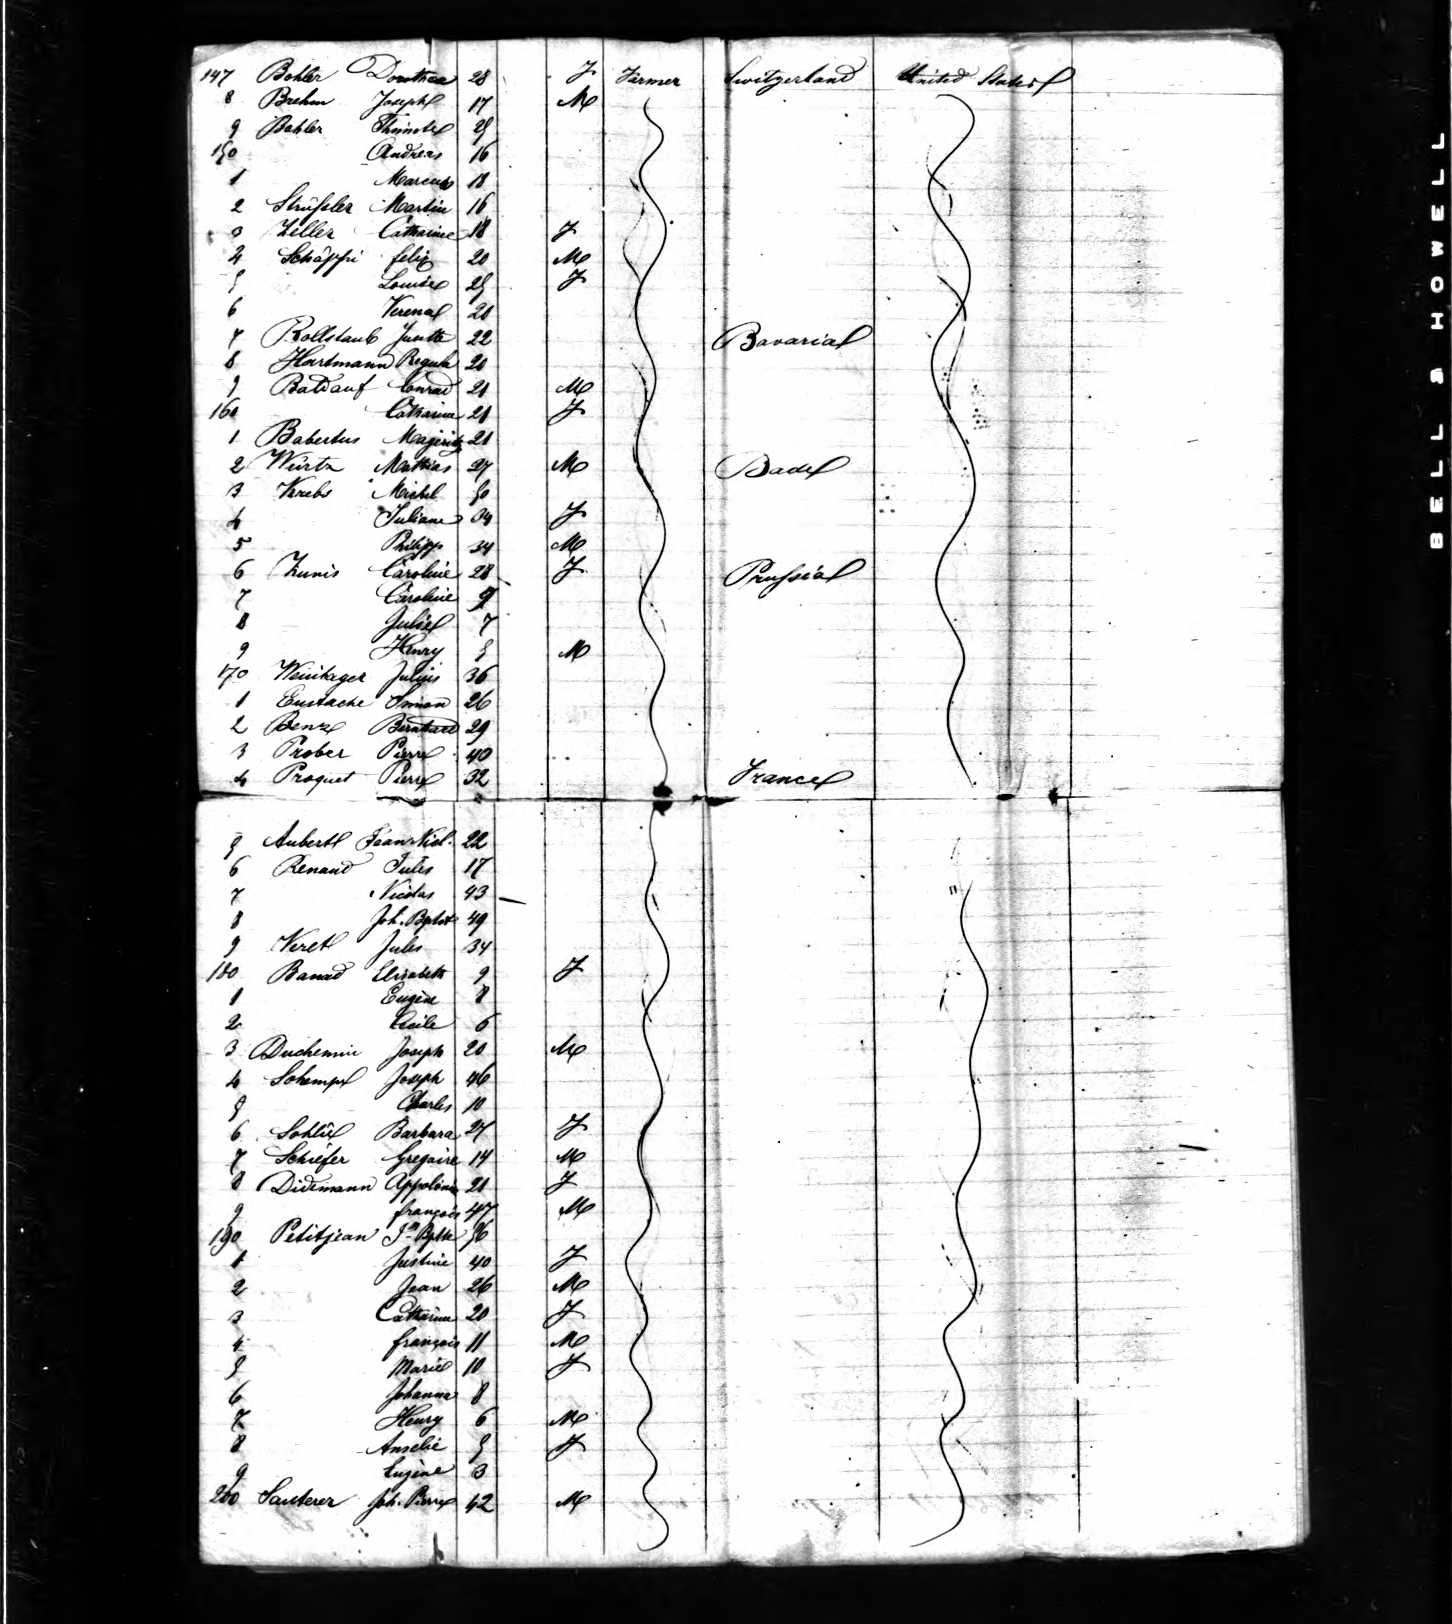 147 Bohler Dorothea 28 F Farmer Switzerland United States
8 Brehm Joseph 17 M
9 Bohler 25
150 Andreas 16
1 Marcus 18
2 Strüssler Martin 16
3 Ziller Catharine 18 F
4 Schäppi Felix 20 M
5 Louise 25 F
6 Verena 20
7 Rollstaub 22 Bavaria
8 Hartmann Regula 20
9 Baldauf Conrad 21 M
160 Catharine 21 F
1 Babertus 21
2 Würtz Mathias 27 M Bade
3 Krebs Michel 50
4 Juliane 34 F
5 Philipp 34 M
6 Kunis Caroline 28 F Prussia
7 Caroline 9
8 Julie 7
9 Henry 5 M
170 Julius 36
1 Eustache Simon 26
2 Benz Bernhard 29
3 Prober Pierre 40
4 Proquet Pierre 32 France
5 Aubert Jean Nicl. 22
6 Renaud Jules 17
7 Nicolas 43
8 Joh. Bptste 49
9 Veret Jules 34
180 Banad Elisabeth 9 F
1 Eugène 8
2 Cécile 6
3 Duchemin Joseph 20 M
4 Schempf Joseph 46
5 Charles 10
6 Sohlie Barbara 27 F
7 Schiefer Gregoire 14 M
8 Didemann Appolonia 21 F
9 françois 47 M
190 Petitjean Jn Bptte 56
1 Justine 40 F
2 Jean 26 M
3 Catharine 20 F
4 françois 11 M
5 Marie 10 F
6 Johanna 8
7 Henry 6 M
8 Amelie 5 F
9 Eugène 3
200 Sauterer Joh. Pierre 42 M
BELL & HOWELL